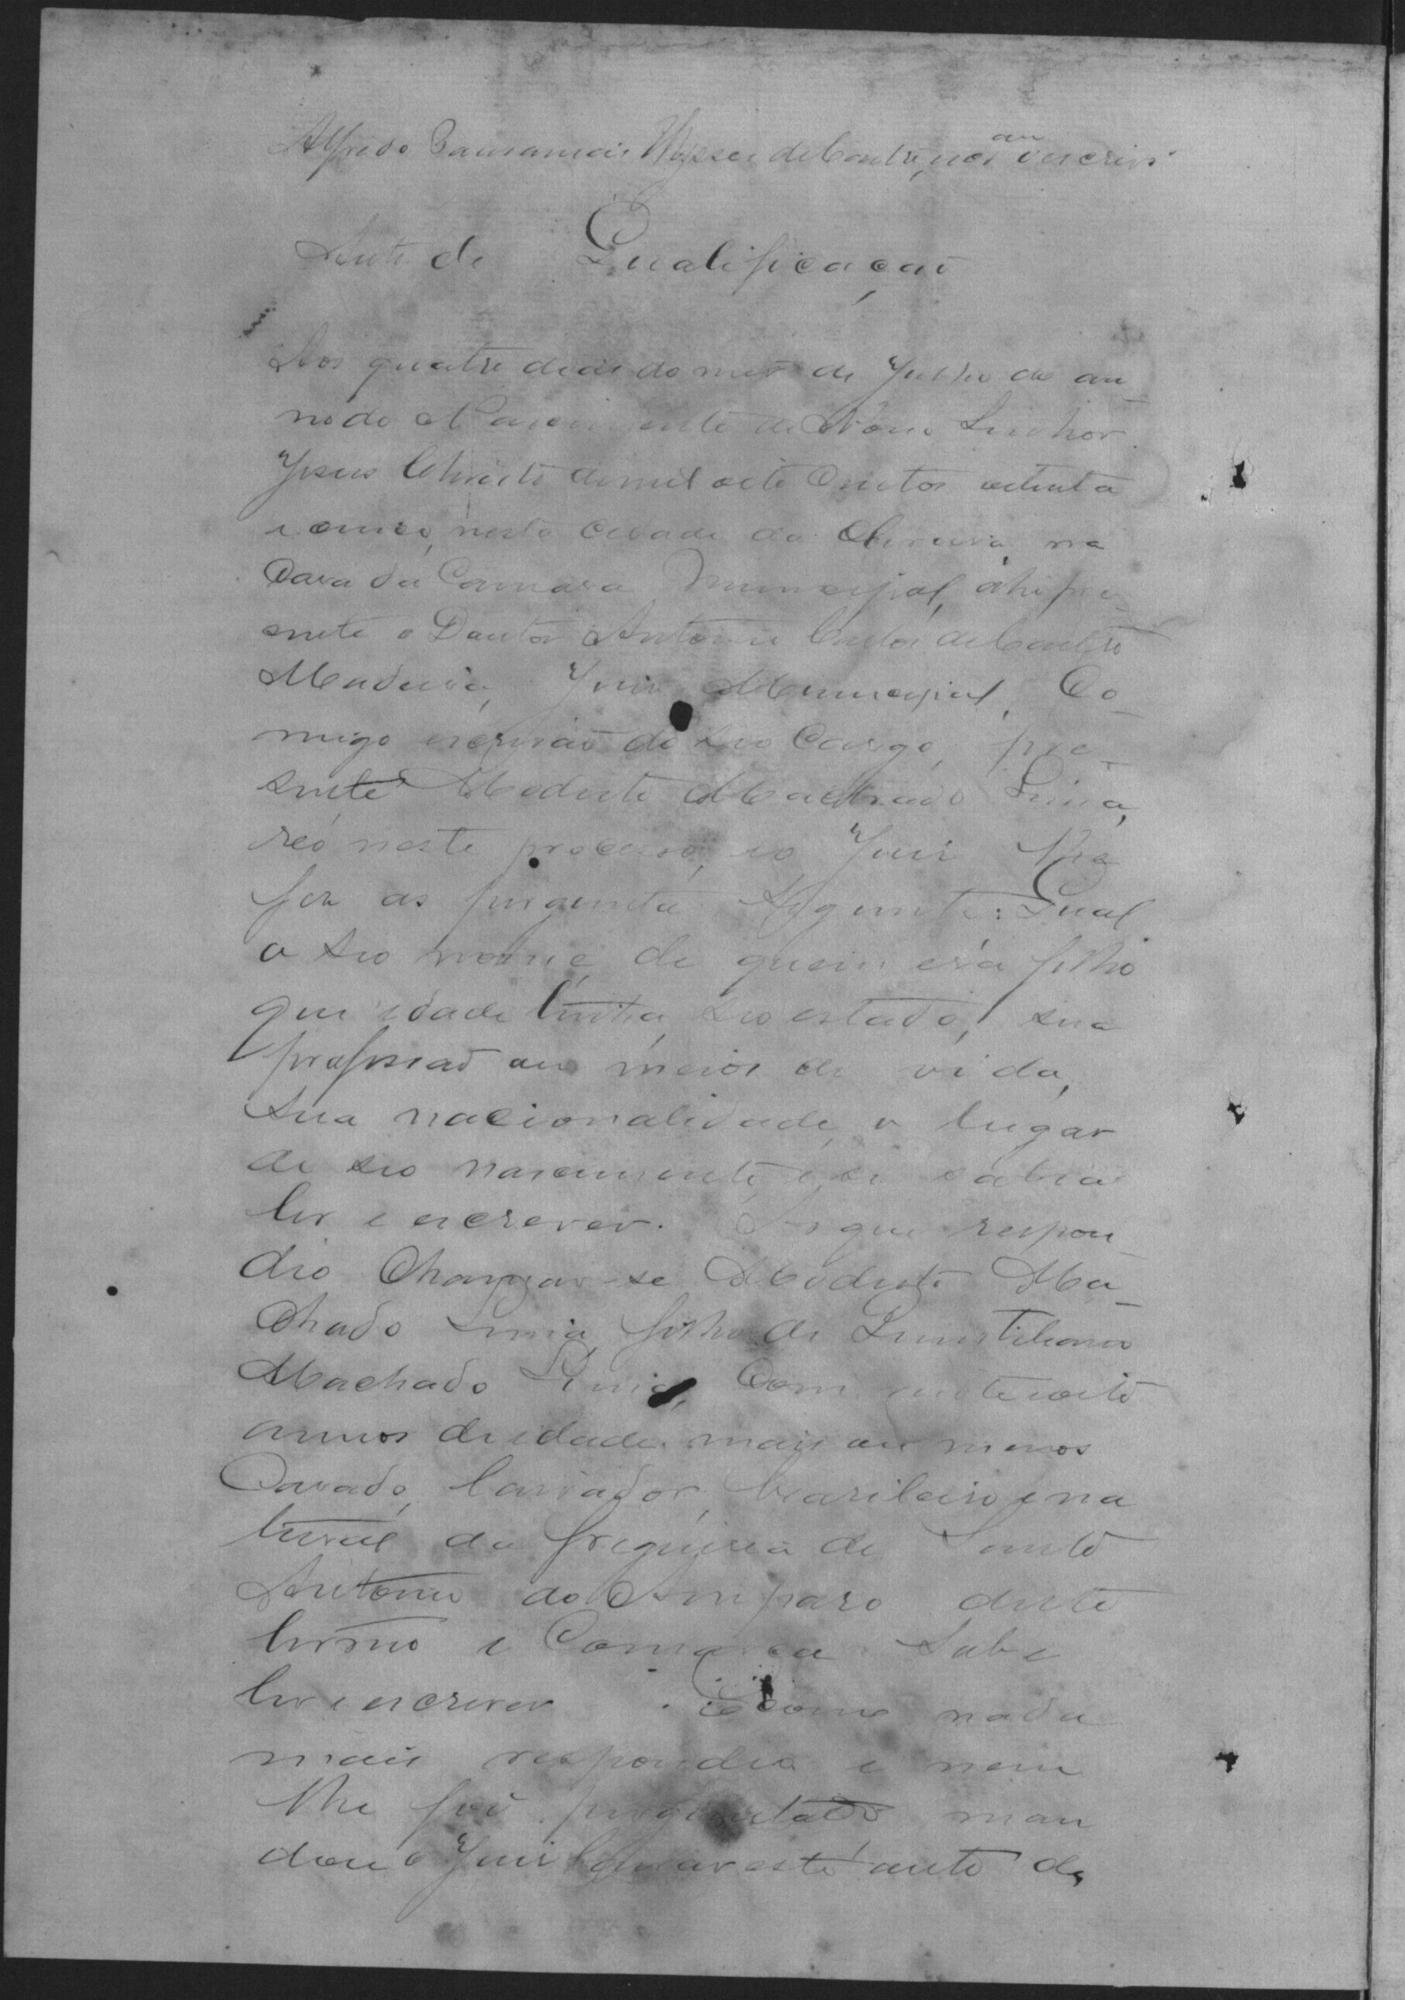 Alfredo de Castro, escriv
Auto de Qualificação
Aos quatro dias do mes de Julho do an-
no do Nascimento de Nosso Senhor
Jesus Christo de mil oito centos oitenta
e cinco, nesta cidade da Oliveira, na
Casa da Camara Municipal, ahi pre-
sente o Doutor Antonio Carlos de Castro
Madeira, Juiz Municipal, Co-
migo escrivão do seo Cargo, pre-
sente Modesto Machado
reo neste processo, eo Juiz lhe
fez as pergunta seguinte: Qual
o seo nome, de quem era filho
que idade tinha, seo estado, sua
profissão ou meios de vida,
sua nacionalidade, o lugar
de seo nascimento, e si sabia
ler e escrever. Ao que respon-
deo Chamar-se Modesto Ma-
chado filho de Quintiliano
Machado Com vinte e oito
annos de idade mais ou menos
Casado, lavrador, brazileiro e na
tural da freguesia de Santo
Antonio do Amparo deste
termo e Comarca Sabe
ler e escrever. E como nada
mais respondeo e nem
lhe foi perguntado man
dou o Juiz lavrar este auto de